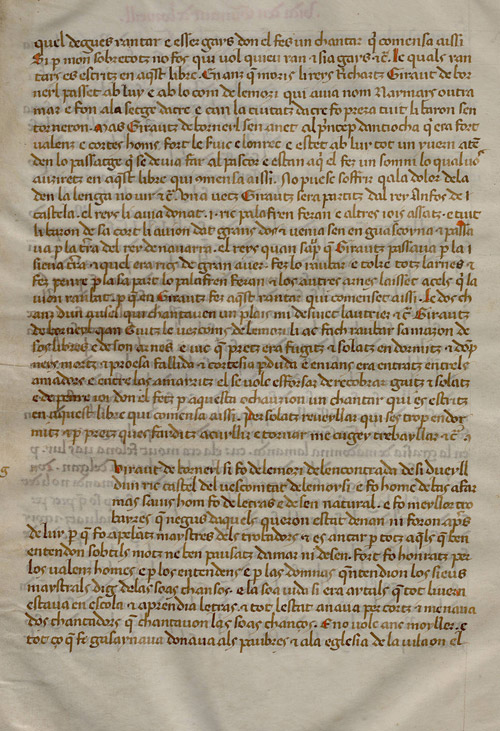 quel degues rantar e esser gars don el fes un chantar q̃ comensa aissi
Si p̱ mon sobretotz no fos qui vol quieu ran e sia gays &c̃. Le quals ran
tars es escritz en aqst libre. Enanz q̃ moris li reys Richartz Giraut de bor
nerl passet ab luy e ab lo com de lemozi qui avia nom Narmars outra
mar e fon ala setge dacre e can la ciutatz dacre fo preza tuit li baron sen
torneron. Mas Girautz de bornerl sen anet al p̃ncep dantiocha q̃ era fort
valenz e cortes homs. fort le fuic e lonrec e estet ab luy tot un yuern atē
den lo passatge q̃ se devia far al pascor e estan aq̃ el fez un somni lo qual
auziretz en aqst libre qui comensa aissi. No puesc soffrir qala dolor dela
den la lenga no vir &c̃. Una vetz Girautz sera partitz dal rey Anfos de
castela. el reys li avia donat .i. ric palafren feran e altres iois assatz. e tuit
li baron de sa cort li avion dat grans dos e venia sen en guascoyna e passa
va p̱ la t̃ra del rey de navarra. el reys quan saup q̃ Girautz passava p̱ la
sieua t̃ra e quel era rics de gran aver. fez lo raubar e tolre totz larnes e
fez penre p̱ sa part lo palafren feran e los autres arnes laisset acels q̃ la
vion raubat. p̱ q̃ en Girautz fez aqst rantar qui comenset aissi. Lo dos ch
anz dun ausel que chantau en un plais mi desviet lautrier &c̃ Girautz
de bornerl quan Guitz lo vescoms de lemozi li ac faich raubar sa mazon de
sos libres e de son arnes. e vic q̃ pretz era fugitz e solatz endormitz e dop̃
neys mortz e proesa fallida e cortesia p̱duda e enians era entratz entrels
amadors e entre las amairitz el se volc esforsar de recobrar gautz e solatz
e de penre ioi don el fetz p̱ aquesta ochauzon un chantar qui es escritz
en aquest libre qui comensa aissi. Per solatz reveyllar qui ses trop endor
mitz e p̱ pretz ques faiditz acuyllir e tornar me cugey trebayllar &c̃.
g Giraut de bornerl si fo de lemozi del encontrada de si dueyll
dun ric castel del vescomtat de lemozi. e fo home de bas afar
mas savis hom fo de letras e de sen natural. e fo meyllor tro
bayres q̃ negus daquels queron estat denan ni foron ap̃s
de luy. p̱ q̃ fo apelatz maystres dels trobadors e es antar p̱ totz aq̃ls q̃ ben
entendon sobtils motz ne ben pausatz damar ni desen. Fort fo honratz per
los valens homes e p̱ los entendens e p̱ las domnas q̃ntendion los sieus
maystrals digz de las soas chansos. e la soa vida si era aytals q̃ tot luvern
estava en escola e aprendia letras. e tot lestat anava per cortz e menava
dos chantadors q̃ chantavon las soas chansos. E no volc anc moyller. e
tot ço q̃ fe gasarnava donava als paubres e ala eglesia de la vila on el